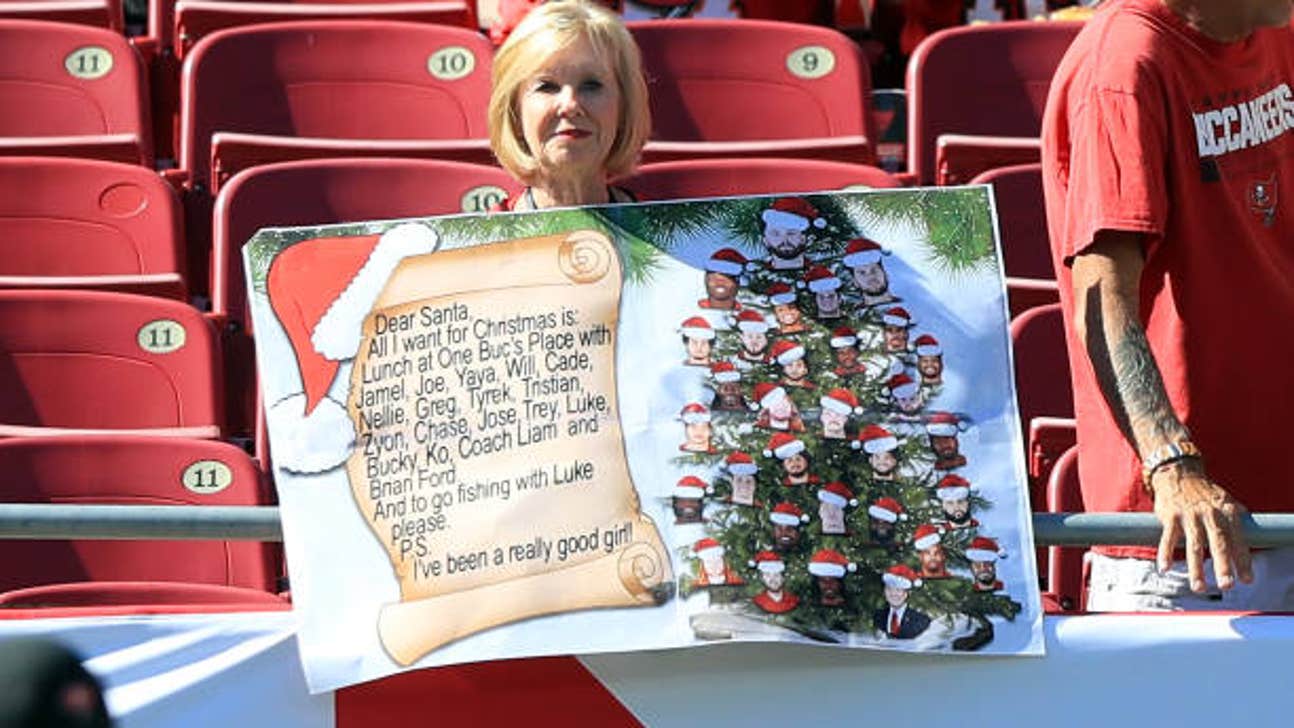 11
10
9
10
11
11
BUCCANEERS
Dear Santa,
All I want for Christmas is:
Lunch at One Buc's Place with
Jamel, Joe, Yaya, Will, Cade,
Nellie, Greg, Tyrek, Tristian,
Zyon, Chase, Jose Trey, Luke,
Bucky, Ko, Coach Liam and
Brian Ford.
And to go fishing with Luke
please.
PS.
I've been a really good girl!!